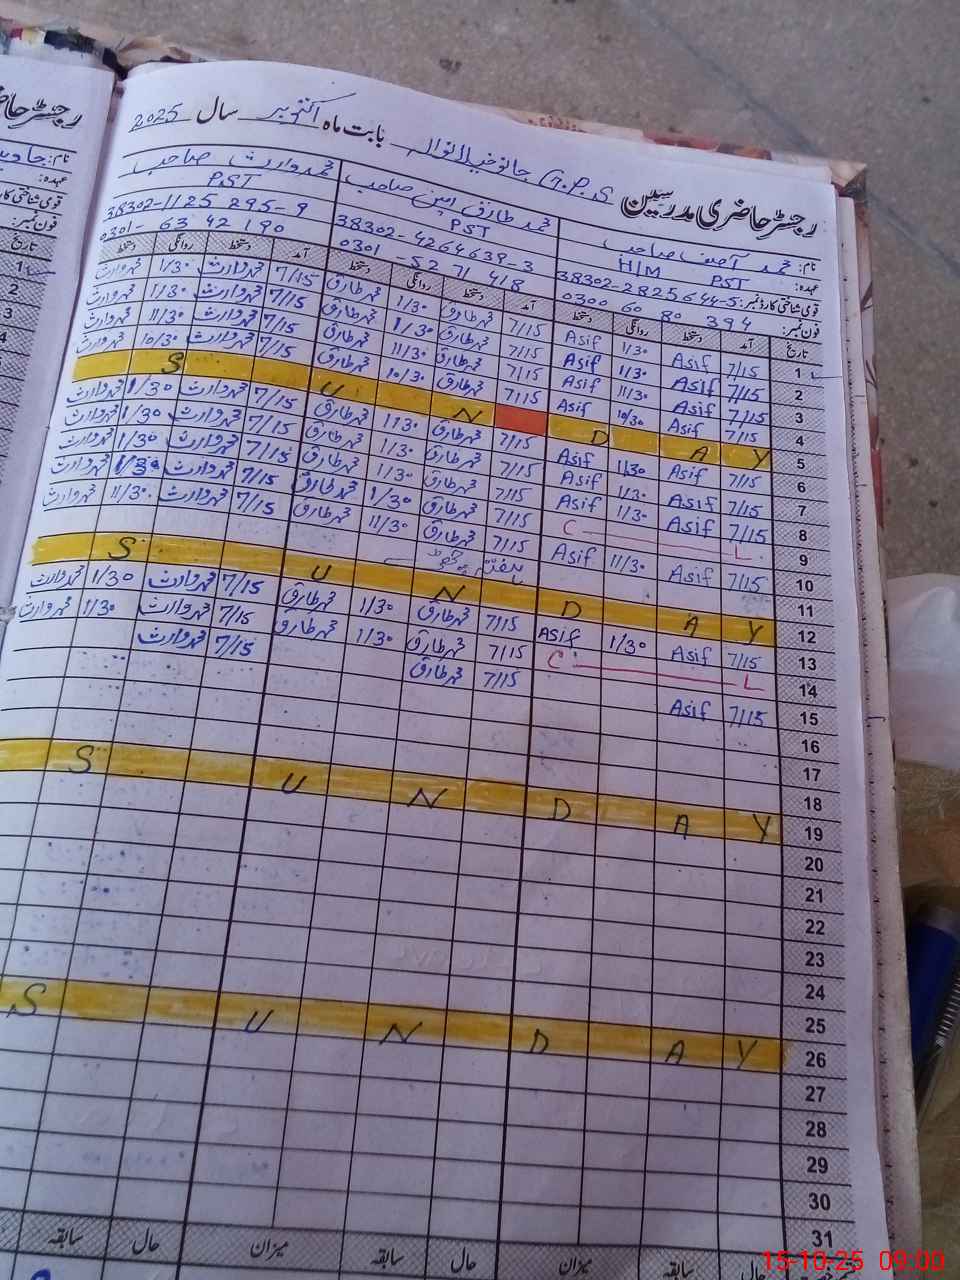 رجسٹر حاضری مدرسین G.P.S جانوخیلانوالہ بابت ماہ اکتوبر سال 2025
نام: محمد آصف صاحب محمد طارق امین صاحب محمد وارث صاحب
عہدہ: H/M PST PST PST
قومی شناختی کارڈ نمبر: 38302-2825644-5 38302-4264639-3 38302-1125295-9
فون نمبر: 0300 60 80 394 0301-5271418 0301-6342190
تاریخ آمد دستخط روانگی دستخط آمد دستخط روانگی دستخط آمد دستخط روانگی دستخط
1 7/15 Asif 1/30 Asif 7/15 محمد طارق 1/30 محمد طارق 7/15 محمد وارث 1/30 محمد وارث
2 7/15 Asif 1/30 Asif 7/15 محمد طارق 1/30 محمد طارق 7/15 محمد وارث 1/30 محمد وارث
3 7/15 Asif 11/30 Asif 7/15 محمد طارق 11/30 محمد طارق 7/15 محمد وارث 11/30 محمد وارث
4 7/15 Asif 10/30 Asif 7/15 محمد طارق 10/30 محمد طارق 7/15 محمد وارث 10/30 محمد وارث
5 S U N D A Y
6 7/15 Asif 1/30 Asif 7/15 محمد طارق 1/30 محمد طارق 7/15 محمد وارث 1/30 محمد وارث
7 7/15 Asif 1/30 Asif 7/15 محمد طارق 1/30 محمد طارق 7/15 محمد وارث 1/30 محمد وارث
8 7/15 Asif 1/30 Asif 7/15 محمد طارق 1/30 محمد طارق 7/15 محمد وارث 1/30 محمد وارث
9 C L 7/15 محمد طارق 1/30 محمد طارق 7/15 محمد وارث 1/30 محمد وارث
10 7/15 Asif 11/30 Asif 7/15 محمد طارق 11/30 محمد طارق 7/15 محمد وارث 11/30 محمد وارث
11
12 S U N D A Y
13 7/15 Asif 1/30 Asif 7/15 محمد طارق 1/30 محمد طارق 7/15 محمد وارث 1/30 محمد وارث
14 C L 7/15 محمد طارق 1/30 محمد طارق 7/15 محمد وارث 1/30 محمد وارث
15 7/15 Asif 7/15 محمد طارق 7/15 محمد وارث
16
17
18
19 S U N D A Y
20
21
22
23
24
25
26 S U N D A Y
27
28
29
30
31
حال سابقہ میزان حال سابقہ میزان حال سابقہ
رجسٹر حا
نام: جاوید
عہدہ:
قومی شناختی کارڈ
فون نمبر:
تاریخ
1
2
3
4
15-10-25 09:00